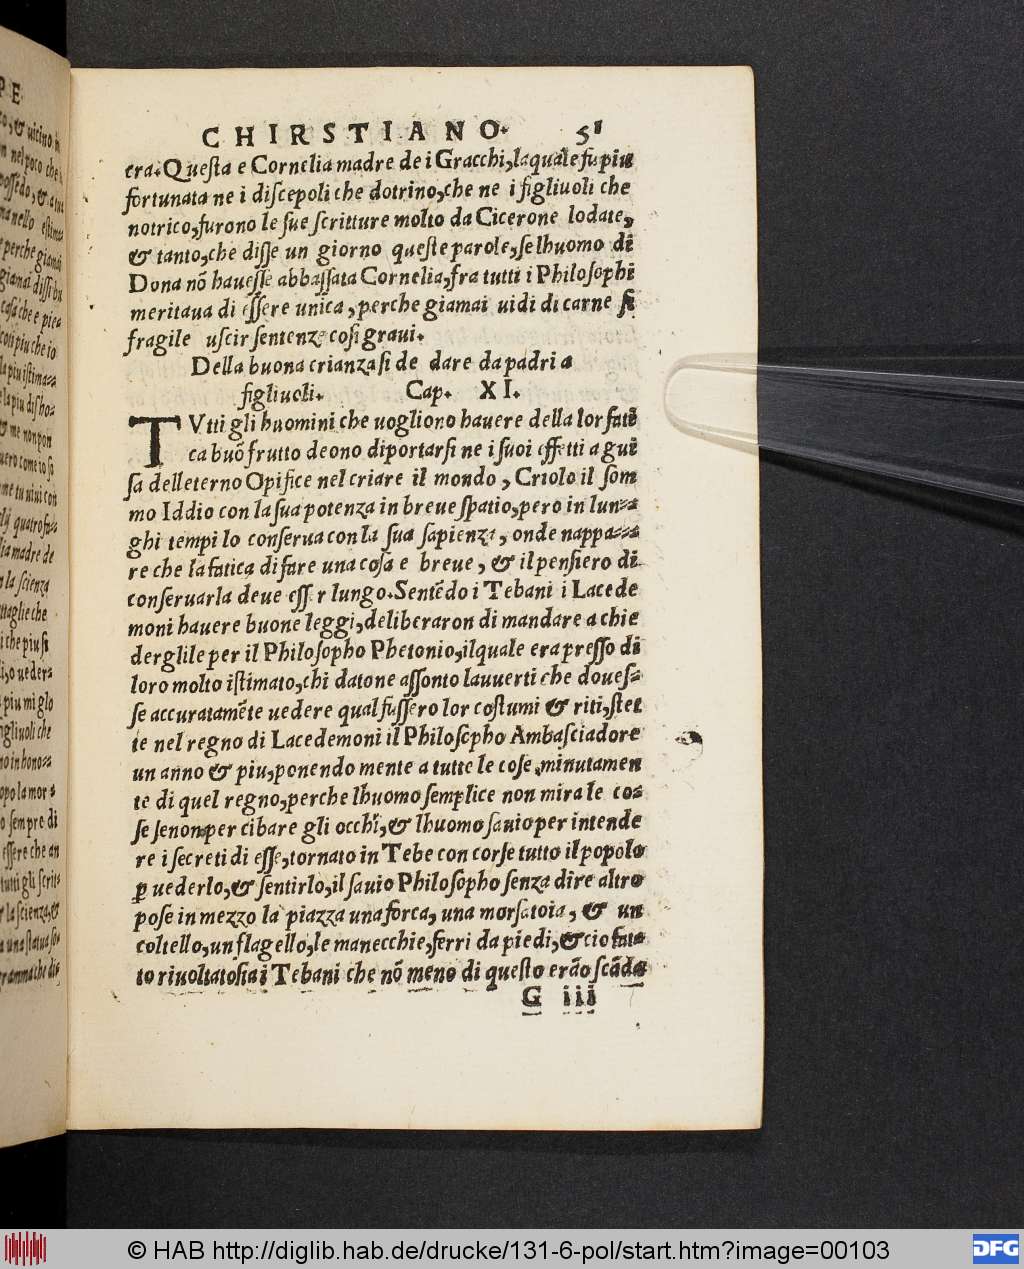 CHIRSTIANO. 51
era. Questa e Cornelia madre de i Gracchi, laquale fu piu
fortunata ne i discepoli che dotrino, che ne i figliuoli che
notrico, furono le sue scritture molto da Cicerone lodate,
& tanto, che disse un giorno queste parole, se lhuomo di
Dona nõ havesse abbassata Cornelia, fra tutti i Philosophi
meritaua di essere unica, perche giamai uidi di carne si
fragile uscir sentenze cosi graui.
Della buona crianza si de dare da padri a
figliuoli. Cap. XI.
TVtti gli huomini che uogliono hauere della lor fati
ca buõ frutto deono diportarsi ne i suoi effetti a gui
sa delleterno Opifice nel criare il mondo, Criolo il som
mo Iddio con la sua potenza in breue spatio, pero in lun-
ghi tempi lo conserua con la sua sapienza, onde nappa-
re che la fatica di fare una cosa e breue, & il pensiero di
conseruarla deue ess r lungo. Sentẽdo i Tebani i Lacede
moni hauere buone leggi, deliberaron di mandare a chie
derglile per il Philosopho Phetonio, ilquale era presso di
loro molto istimato, chi datone assonto lauuerti che doues-
se accuratamẽte uedere qual fussero lor costumi & riti, stet
te nel regno di Lacedemoni il Philosopho Ambasciadore
un anno & piu, ponendo mente a tutte le cose minutamen
te di quel regno, perche lhuomo semplice non mira le co-
se senon per cibare gli occhi, & lhuomo sauio per intende
re i secreti di esse, tornato in Tebe con corse tutto il popolo
ꝑ uederlo, & sentirlo, il sauio Philosopho senza dire altro
pose in mezzo la piazza una forca, una morsatoia, & un
coltello, un flagello, le manecchie, ferri da piedi, & cio fat-
to riuoltatosi a i Tebani che nõ meno di questo erão scãda
G iii
© HAB http://diglib.hab.de/drucke/131-6-pol/start.htm?image=00103
DFG